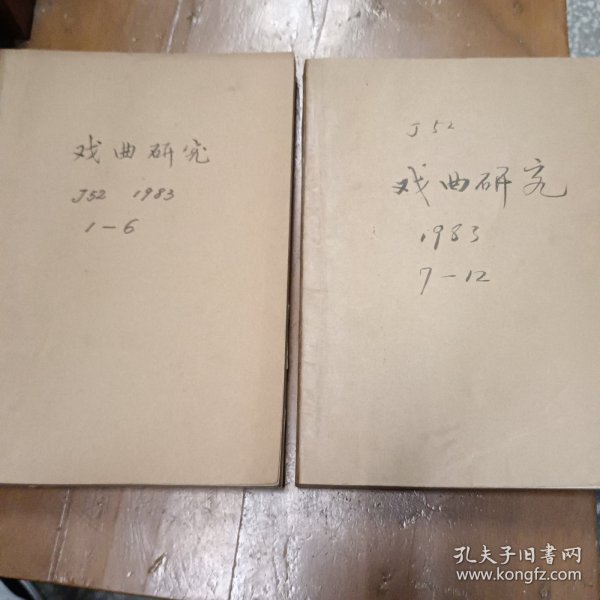 戏曲研究
J52 1983
1-6
J52
戏曲研究
1983
7-12
孔夫子旧书网
www.kongfz.com